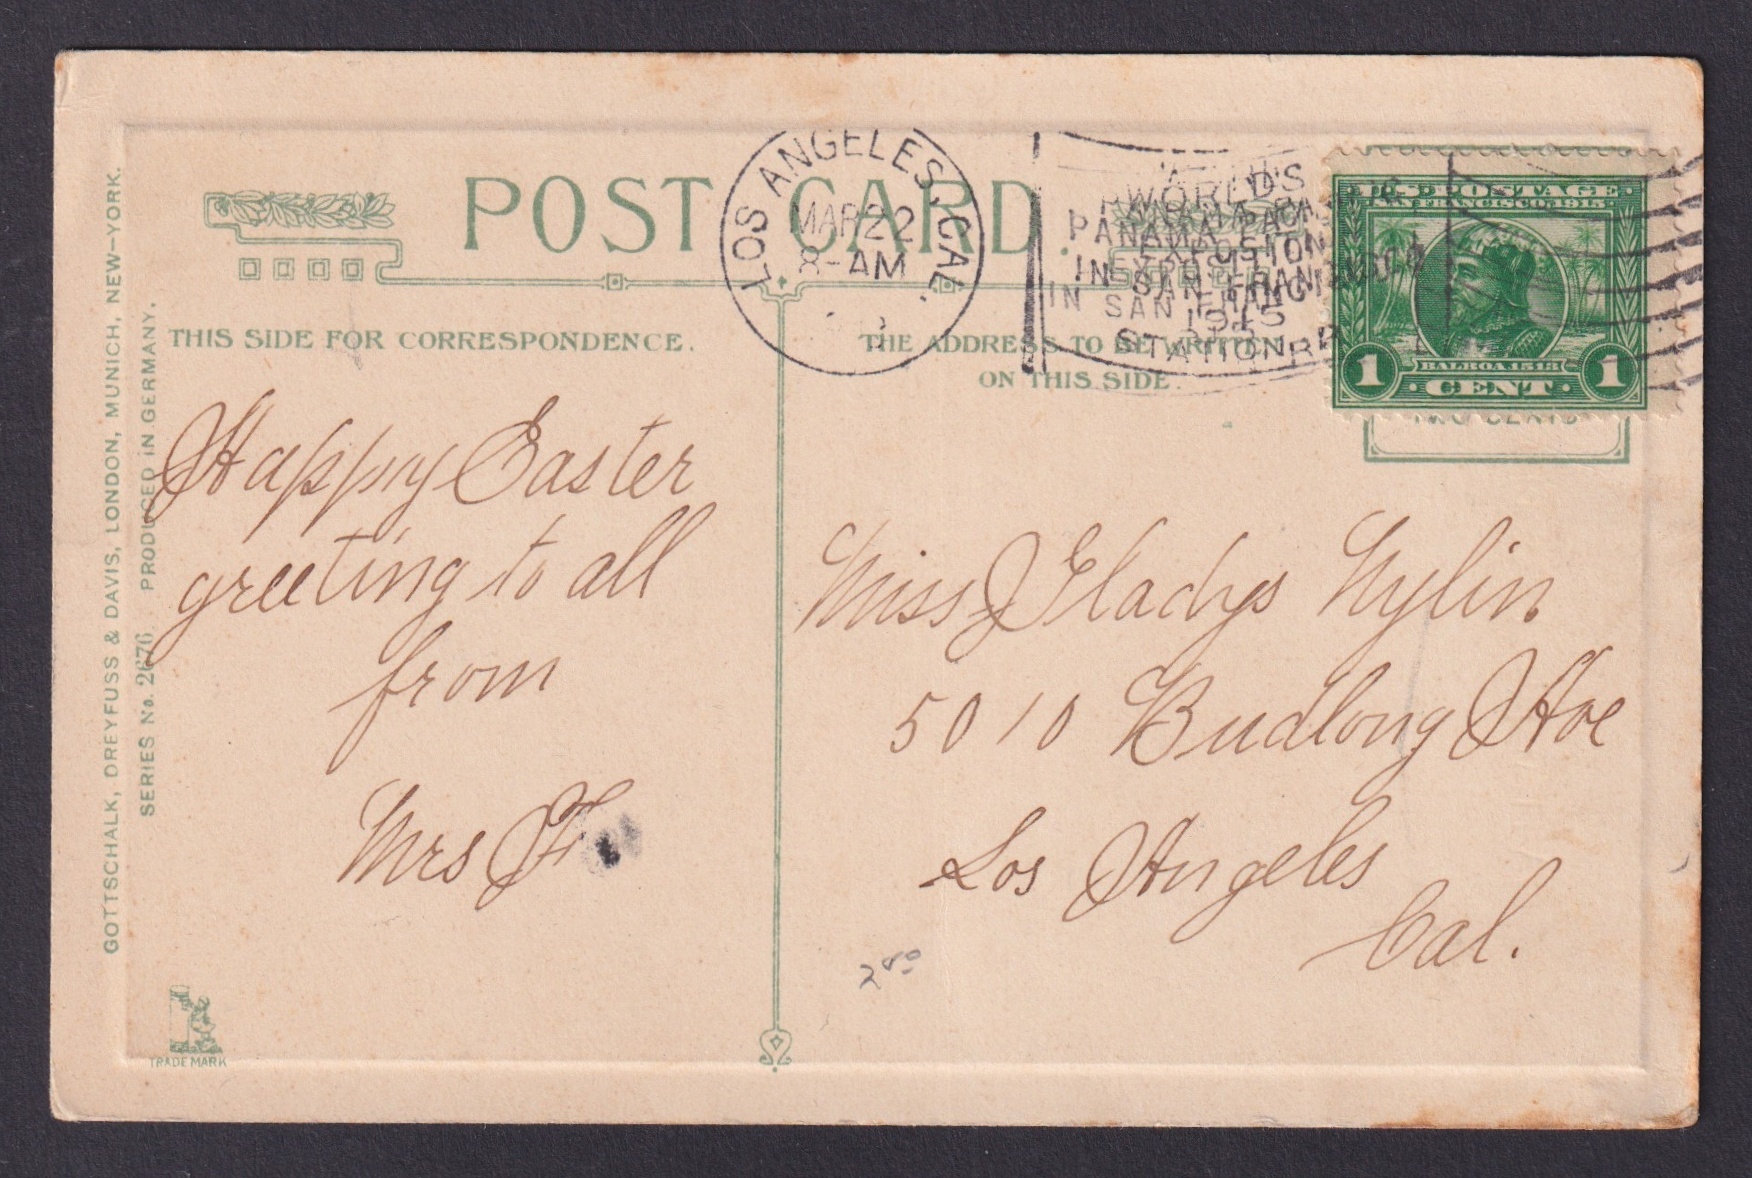 POST CARD.
THIS SIDE FOR CORRESPONDENCE.
THE ADDRESS TO BE WRITTEN
ON THIS SIDE.
LOS ANGELES, CAL.
MAR 22
8-AM
WORLD'S
PANAMA PACIFIC
EXPOSITION
IN SAN FRANCISCO
1915
STATION
U.S. POSTAGE
SAN FRANCISCO, 1915
BALBOA, 1513
1 CENT 1
TWO CENTS
Happy Easter
greeting to all
from
Mrs F
Miss Gladys Nylin.
5010 Budlong Ave
Los Angeles
Cal.
GOTTSCHALK, DREYFUSS & DAVIS, LONDON, MUNICH, NEW-YORK.
SERIES No. 2676. PRODUCED IN GERMANY.
TRADE MARK